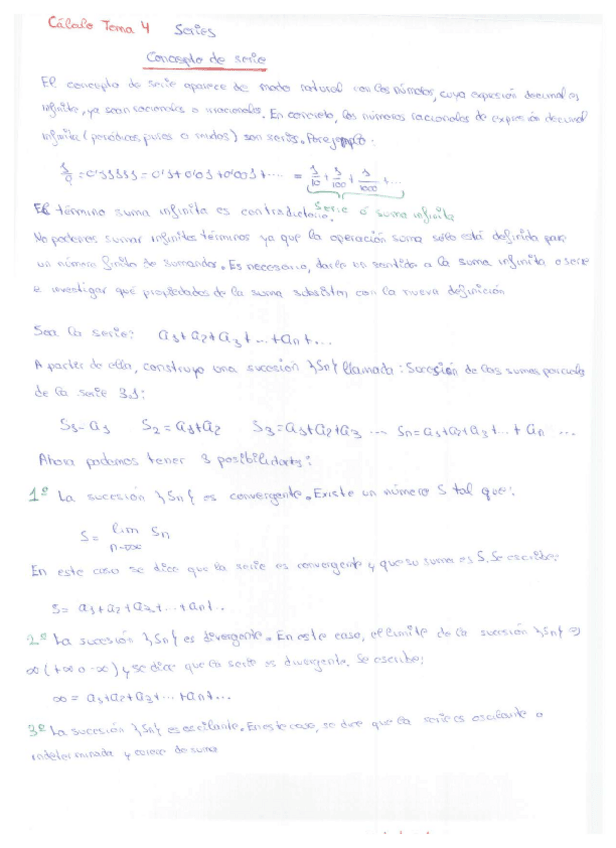 Cálculo Tema 4 Series
Concepto de serie
El concepto de serie aparece de modo natural con los números, cuya expresión decimal es
infinita, ya sean racionales o irracionales. En concreto, los números racionales de expresión decimal
infinita (periódicos puros o mixtos) son series. Por ejemplo:
1/9 = 0'11111 = 0'1 + 0'01 + 0'001 + ... = 1/10 + 1/100 + 1/1000 + ...
serie ó suma infinita
El término suma infinita es contradictorio.
No podemos sumar infinitos términos ya que la operación suma sólo está definida para
un número finito de sumandos. Es necesario, darle un sentido a la suma infinita o serie
e investigar qué propiedades de la suma subsisten con la nueva definición
Sea la serie: a1+a2+a3+...+an+...
A partir de ella, construyo una sucesión {Sn} llamada: Sucesión de las sumas parciales
de la serie 3.1:
S1=a1 S2=a1+a2 S3=a1+a2+a3 ... Sn=a1+a2+a3+...+an ...
Ahora podemos tener 3 posibilidades:
1º La sucesión {Sn} es convergente. Existe un número S tal que:
S = lim Sn
n→∞
En este caso se dice que la serie es convergente y que su suma es S. Se escribe:
S= a1+a2+a3+...+an+...
2º La sucesión {Sn} es divergente. En este caso, el límite de la sucesión {Sn} es
∞ (+∞ o -∞) y se dice que la serie es divergente. Se escribe:
∞ = a1+a2+a3+...+an+...
3º La sucesión {Sn} es oscilante. En este caso, se dice que la serie es oscilante o
indeterminada y carece de suma